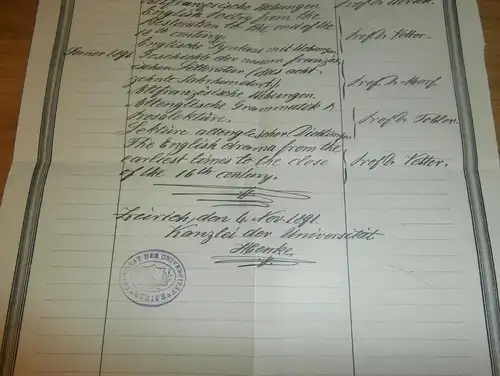 Altfranzösische Uebungen. Prof. Dr. Ulrich.
English Poetry from the
Restoration to the end of the
18th century. Prof. Dr. Vetter.
Englische Syntax mit Uebungen.
Sommer 1891. Geschichte der neuern französi-
schen Litteratur (das acht-
zehnte Jahrhundert). Prof. Dr. Morf.
Altfranzösische Uebungen.
Altenglische Grammatik &
Prosalektüre. Prof. Dr. Tobler.
Lektüre altenglischer Dichtungen.
The English drama from the
earliest times to the close
of the 16th century. Prof. Dr. Vetter.
Zürich, den 6. Nov. 1891.
Kanzlei der Universität
DER UNIVERSITÆT